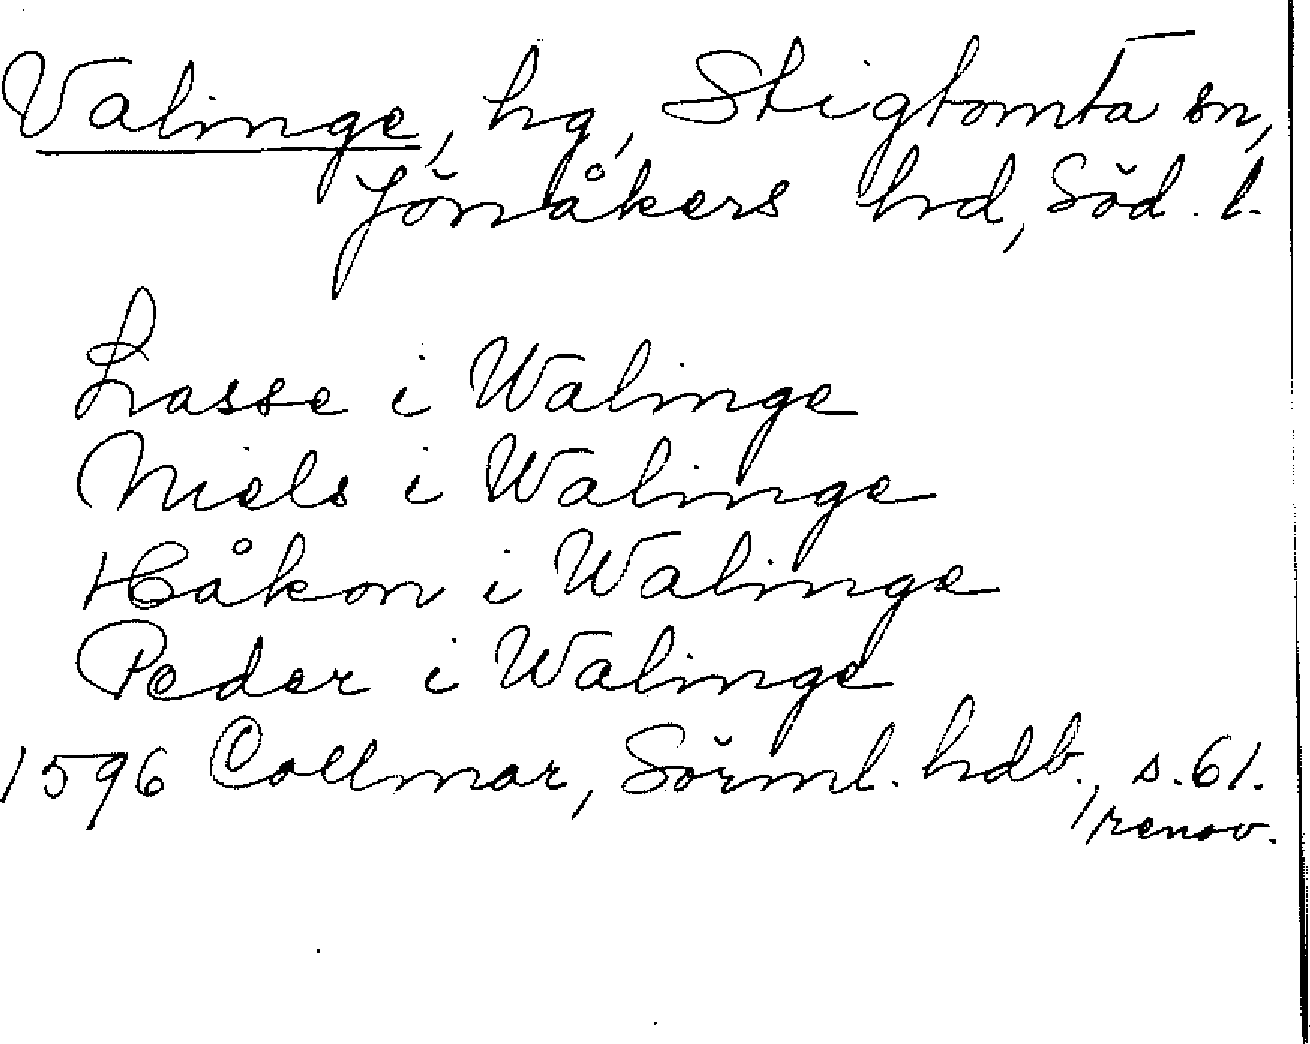 Valinge, hg, Stigtomta sn,
Jönåkers hd, Söd. l.
Lasse i Walinge
Niels i Walinge
Håkon i Walinge
Peder i Walinge
1596 Collmar, Sörml. hdb., s. 61.
renov.